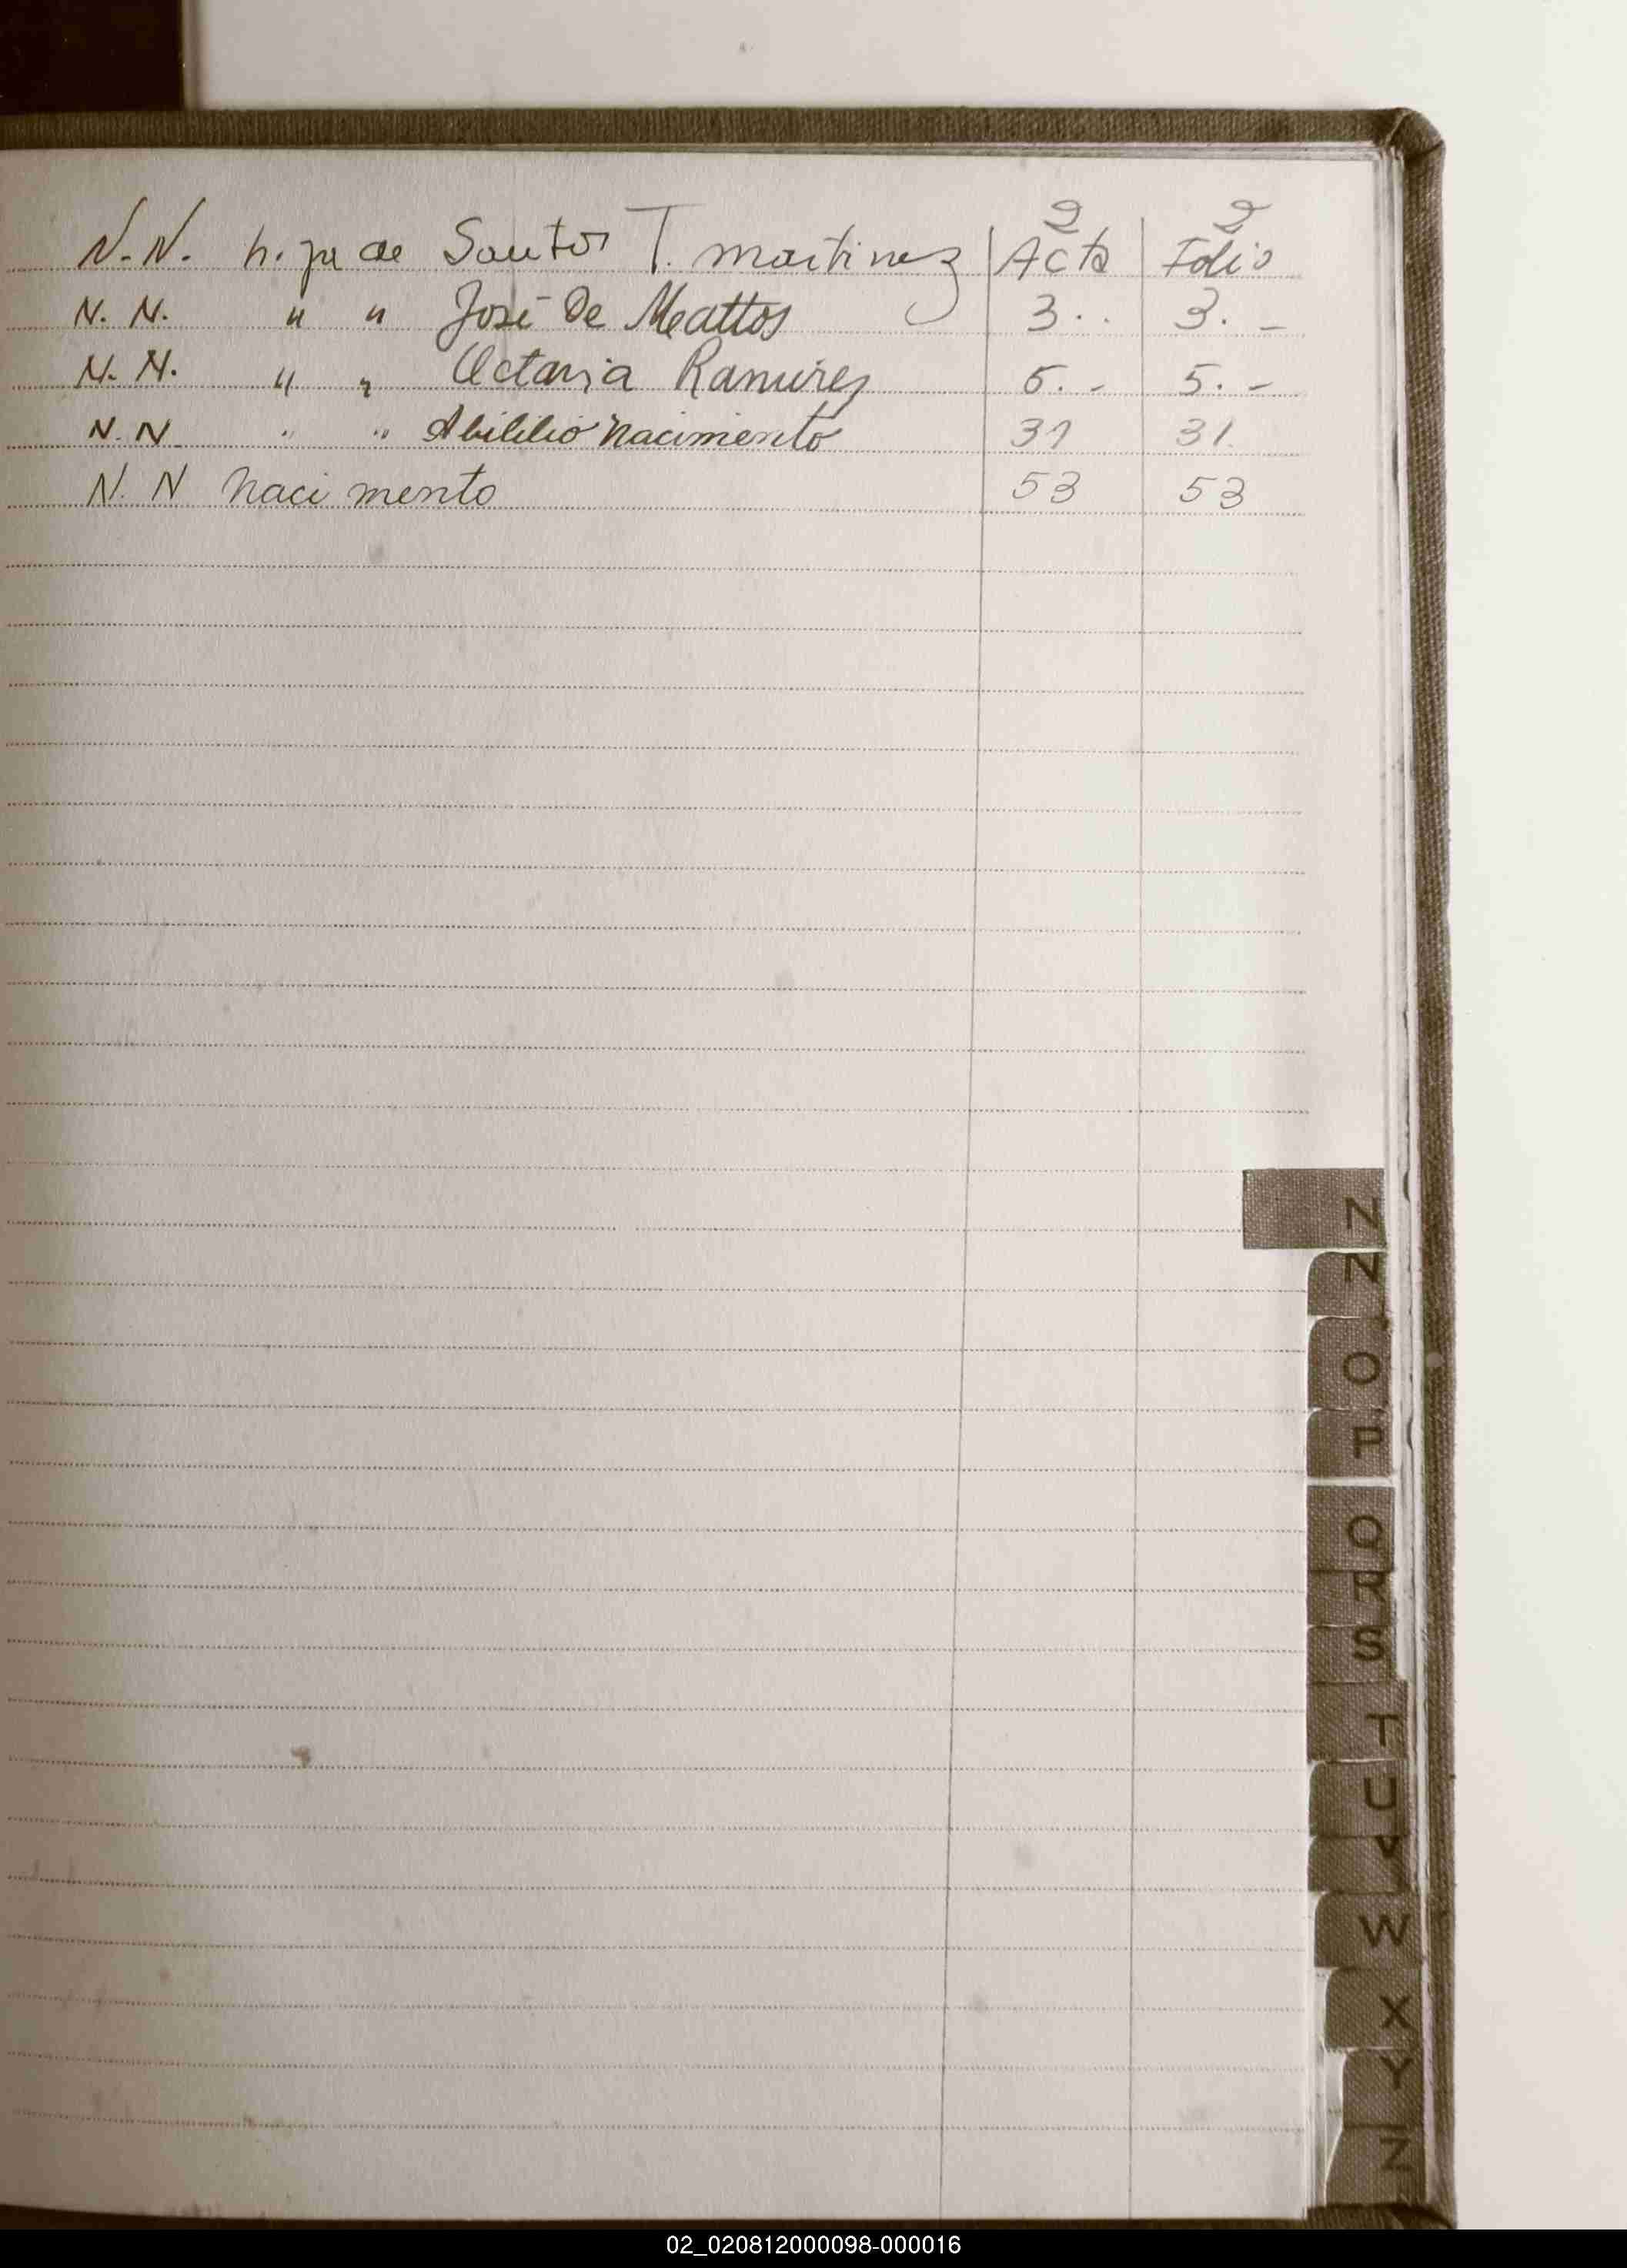 2 2
N.N. hija de Santos T. Martinez Acta Folio
N. N. " " José De Mattos 3.. 3. -
N. N. " " Octavia Ramirez 5. - 5. -
N. N " " Abililio Nacimento 31 31.
N. N Nacimento 53 53
N
N
O
P
Q
R
S
T
U
V
W
X
Y
Z
02_020812000098-000016